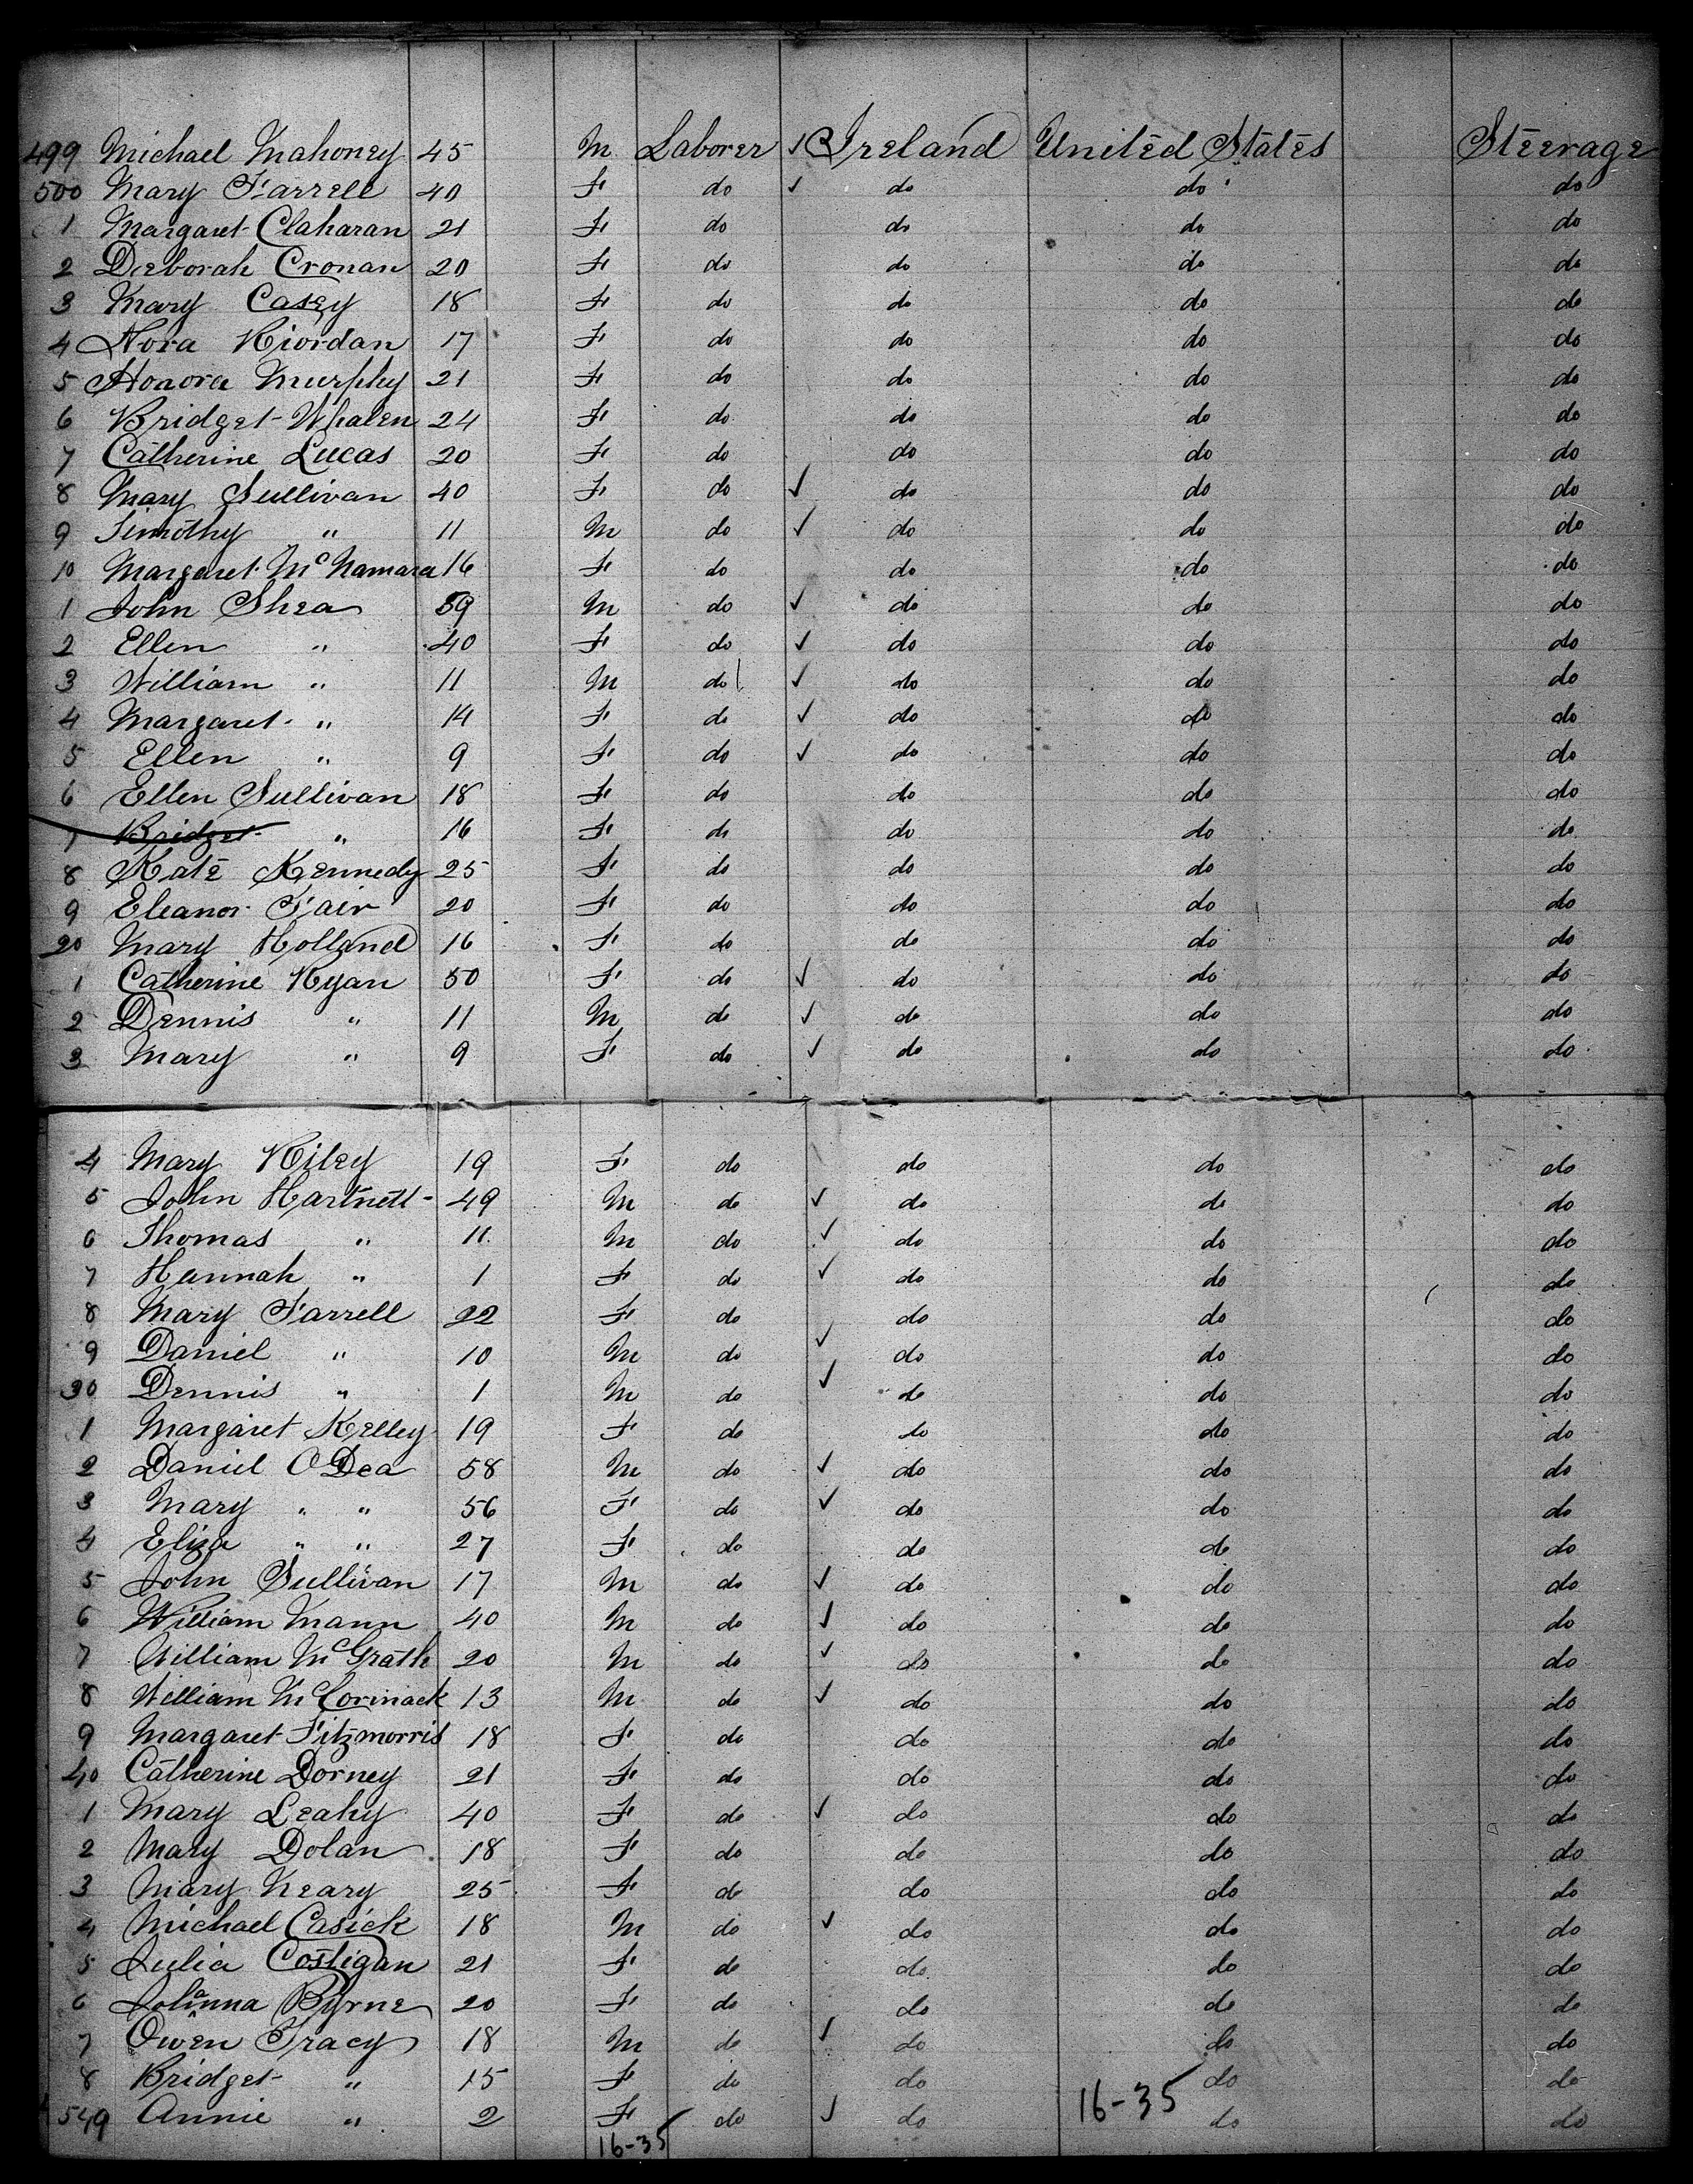 499 Michael Mahoney 45 M Laborer ✓ Ireland United States Steerage
500 Mary Farrell 40 F do ✓ do do do
1 Margaret Claharan 21 F do do do do
2 Deborah Cronan 20 F do do do do
3 Mary Casey 18 F do do do do
4 Nora Riordan 17 F do do do do
5 Honora Murphy 21 F do do do do
6 Bridget Whalen 24 F do do do do
7 Catherine Lucas 20 F do do do do
8 Mary Sullivan 40 F do ✓ do do do
9 Timothy " 11 M do ✓ do do do
10 Margaret McNamara 16 F do do do do
1 John Shea 59 M do ✓ do do do
2 Ellen " 40 F do ✓ do do do
3 William " 11 M do ✓ do do do
4 Margaret " 14 F do ✓ do do do
5 Ellen " 9 F do ✓ do do do
6 Ellen Sullivan 18 F do do do do
7 Bridget " 16 F do do do do
8 Kate Kennedy 25 F do do do do
9 Eleanor Fair 20 F do do do do
20 Mary Holland 16 F do do do do
1 Catherine Ryan 50 F do ✓ do do do
2 Dennis " 11 M do ✓ do do do
3 Mary " 9 F do ✓ do do do
4 Mary Riley 19 F do do do do
5 John Hartnett 49 M do ✓ do do do
6 Thomas " 11 M do ✓ do do do
7 Hannah " 1 F do ✓ do do do
8 Mary Farrell 22 F do do do do
9 Daniel " 10 M do ✓ do do do
30 Dennis " 1 M do ✓ do do do
1 Margaret Kelley 19 F do do do do
2 Daniel O Dea 58 M do ✓ do do do
3 Mary " " 56 F do ✓ do do do
4 Eliza " " 27 F do do do do
5 John Sullivan 17 M do ✓ do do do
6 William Mann 40 M do ✓ do do do
7 William McGrath 20 M do ✓ do do do
8 William McCormack 13 M do ✓ do do do
9 Margaret Fitzmorris 18 F do do do do
40 Catherine Dorney 21 F do do do do
1 Mary Leahy 40 F do ✓ do do do
2 Mary Dolan 18 F do do do do
3 Mary Neary 25 F do do do do
4 Michael Casick 18 M do ✓ do do do
5 Julia Costigan 21 F do do do do
6 Johanna Byrne 20 F do do do do
7 Owen Tracy 18 M do ✓ do do do
8 Bridget " 15 F do do do do
549 Annie " 2 F do ✓ do do do
16-35 16-35